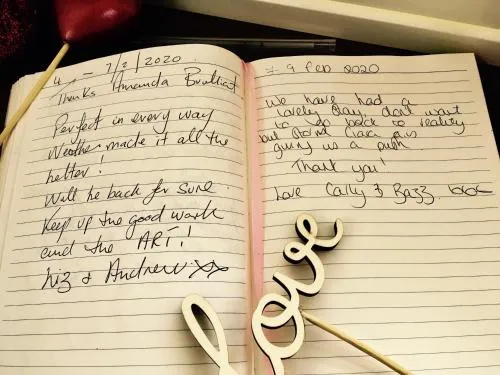 4 - 7/2/2020
Thanks Amanda Brilliant
Perfect in every way
Weather made it all the
better!
Will be back for sure.
Keep up the good work
and the "ART!
Liz & Andrew xx
7 - 9 Feb 2020
We have had a
lovely stay dont want
to go back to reality
but storm Ciara is
giving us a push
Thank you!
Love Cally & Bazz. xoxo
love